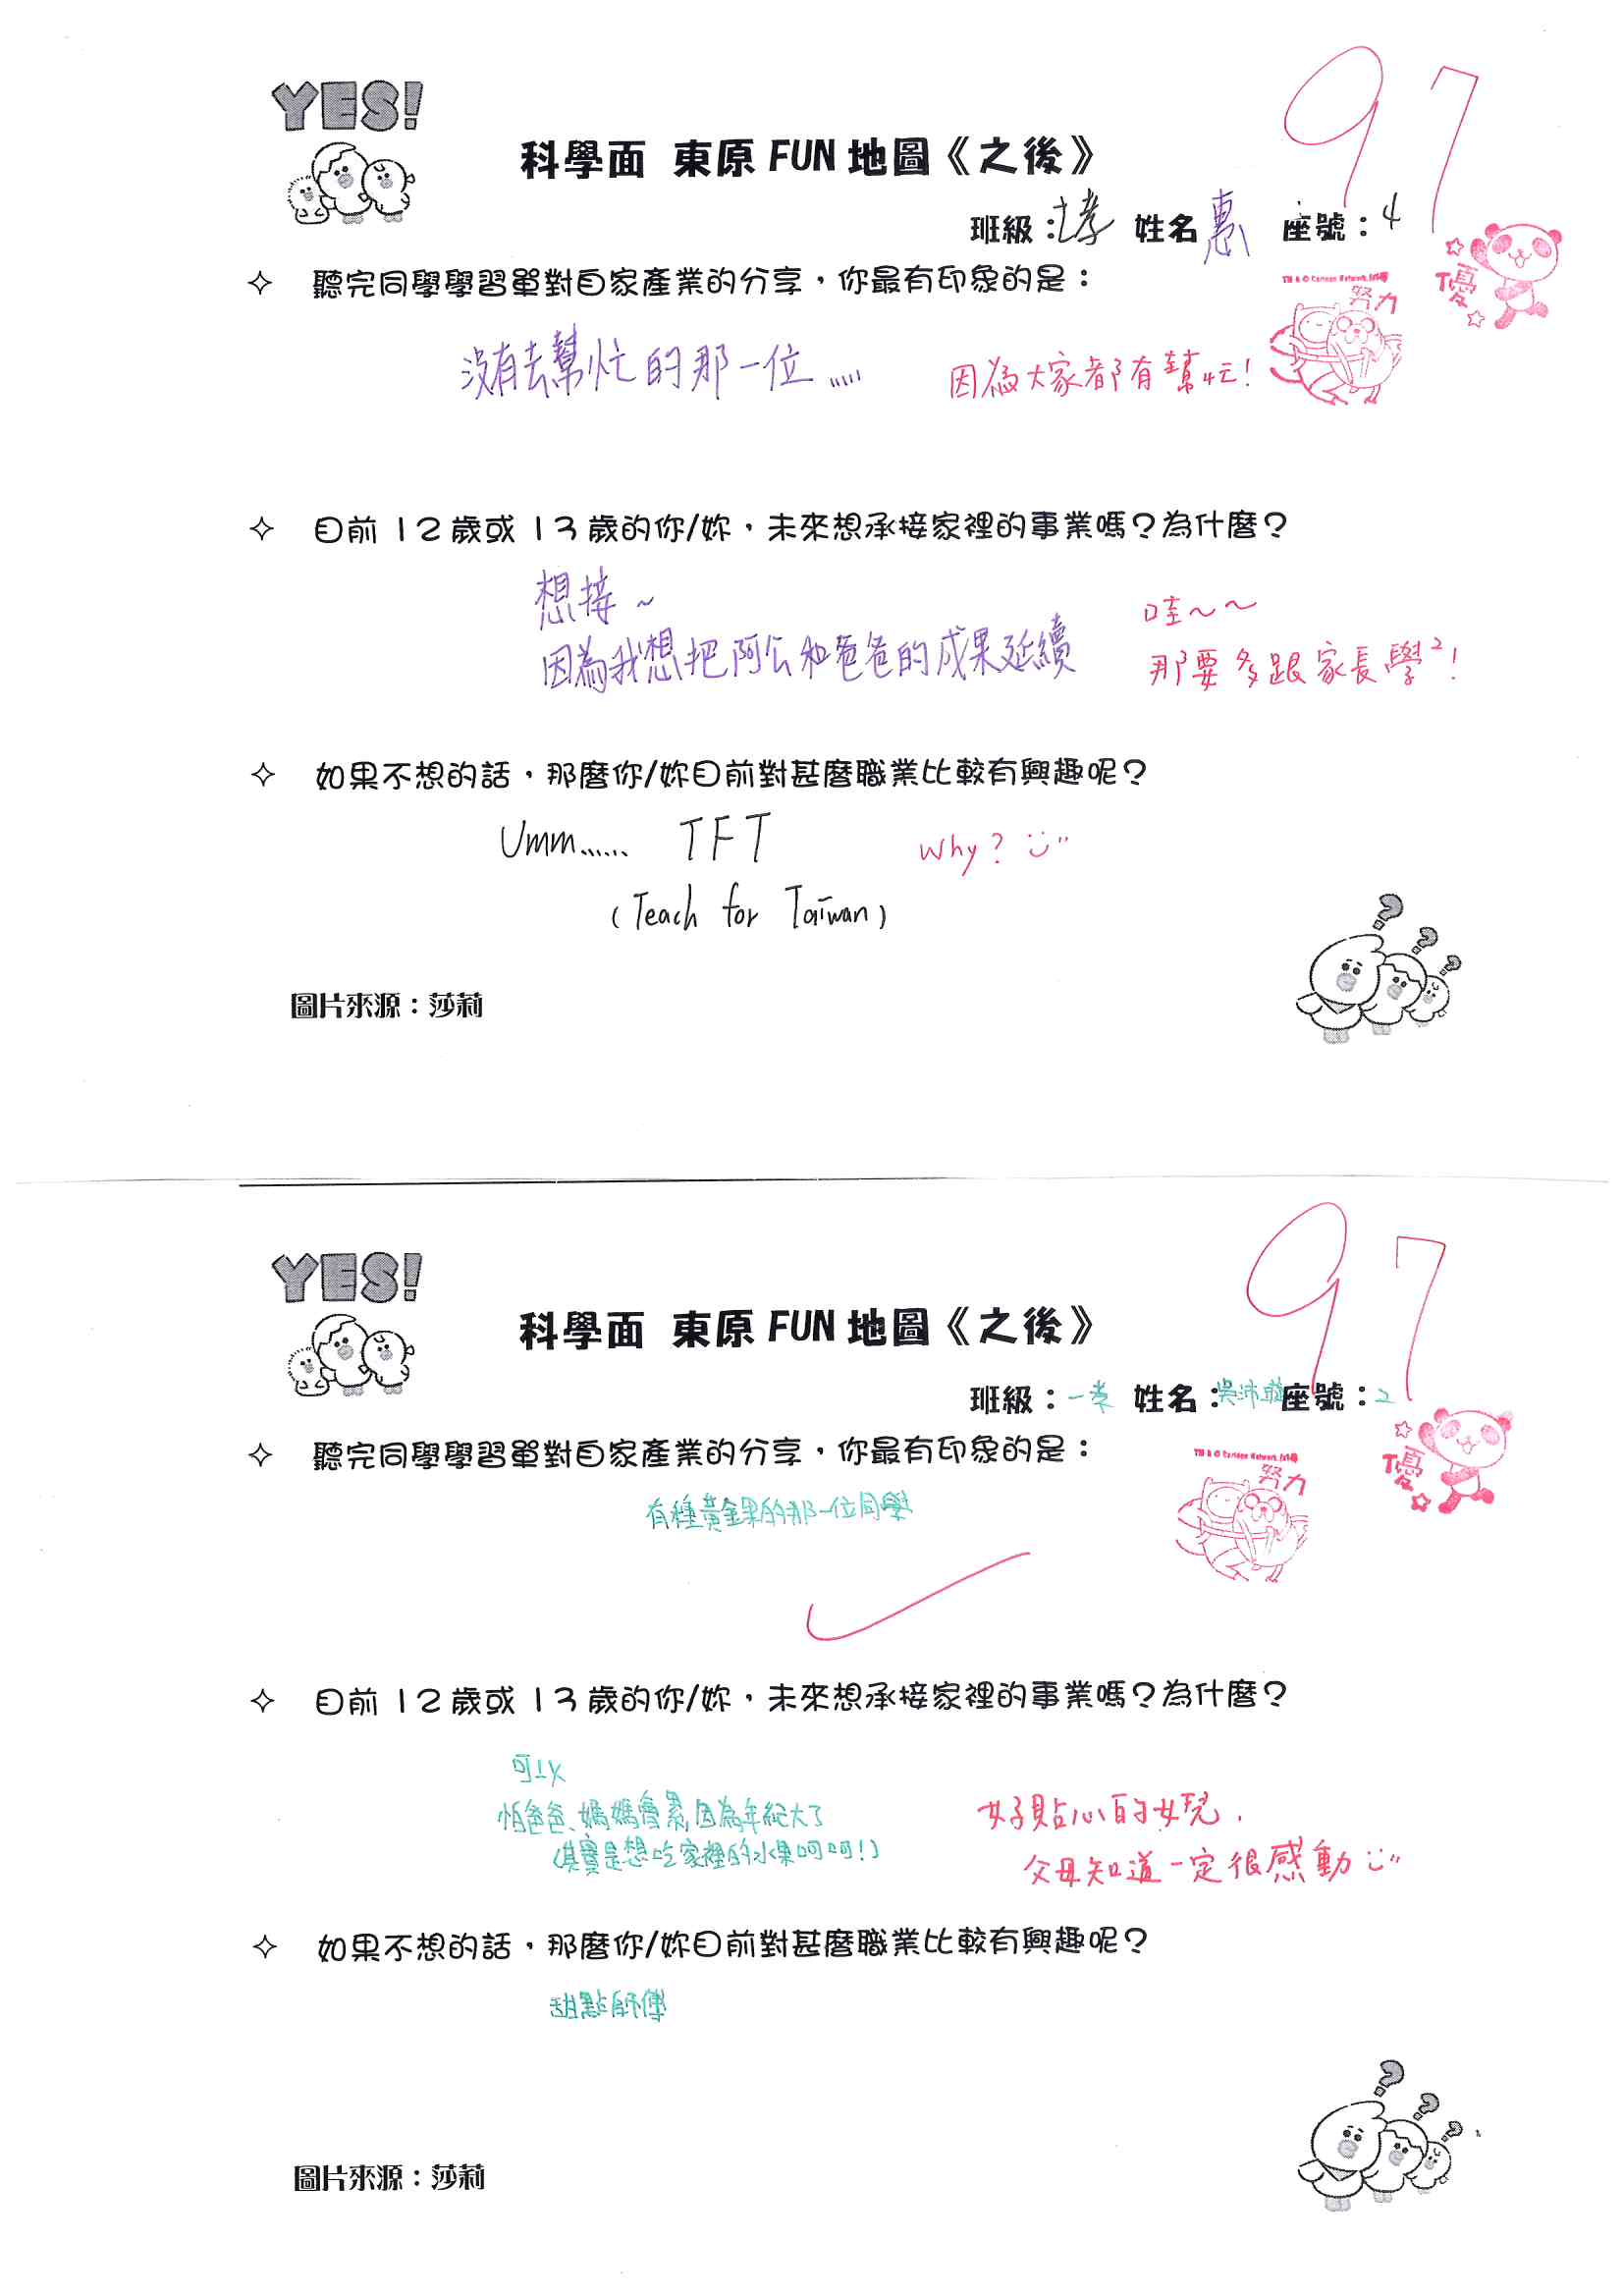 YES!
科學面 東原 FUN 地圖《之後》
97
班級： 孝 姓名 惠 座號：4
優
✧ 聽完同學學習單對自家產業的分享，你最有印象的是：
TM & © Cartoon Network.
努力
沒有去幫忙的那一位......
因為大家都有幫忙!
✧ 目前 12 歲或 13 歲的你/妳，未來想承接家裡的事業嗎？為什麼？
想接~
因為我想把阿公和爸爸的成果延續
哇~~
那要多跟家長學²!
✧ 如果不想的話，那麼你/妳目前對甚麼職業比較有興趣呢？
Umm...... TFT
(Teach for Taiwan)
Why?
? ? ?
圖片來源：莎莉
YES!
科學面 東原 FUN 地圖《之後》
97
班級：一孝 姓名：吳沛 座號：2
優
✧ 聽完同學學習單對自家產業的分享，你最有印象的是：
TM & © Cartoon Network.
努力
有種黃金果的那一位同學
✧ 目前 12 歲或 13 歲的你/妳，未來想承接家裡的事業嗎？為什麼？
可以
怕爸爸、媽媽會累,因為年紀大了
(其實是想吃家裡的水果呵呵!)
好貼心的女兒,
父母知道一定很感動
✧ 如果不想的話，那麼你/妳目前對甚麼職業比較有興趣呢？
甜點師傅
? ? ?
圖片來源：莎莉